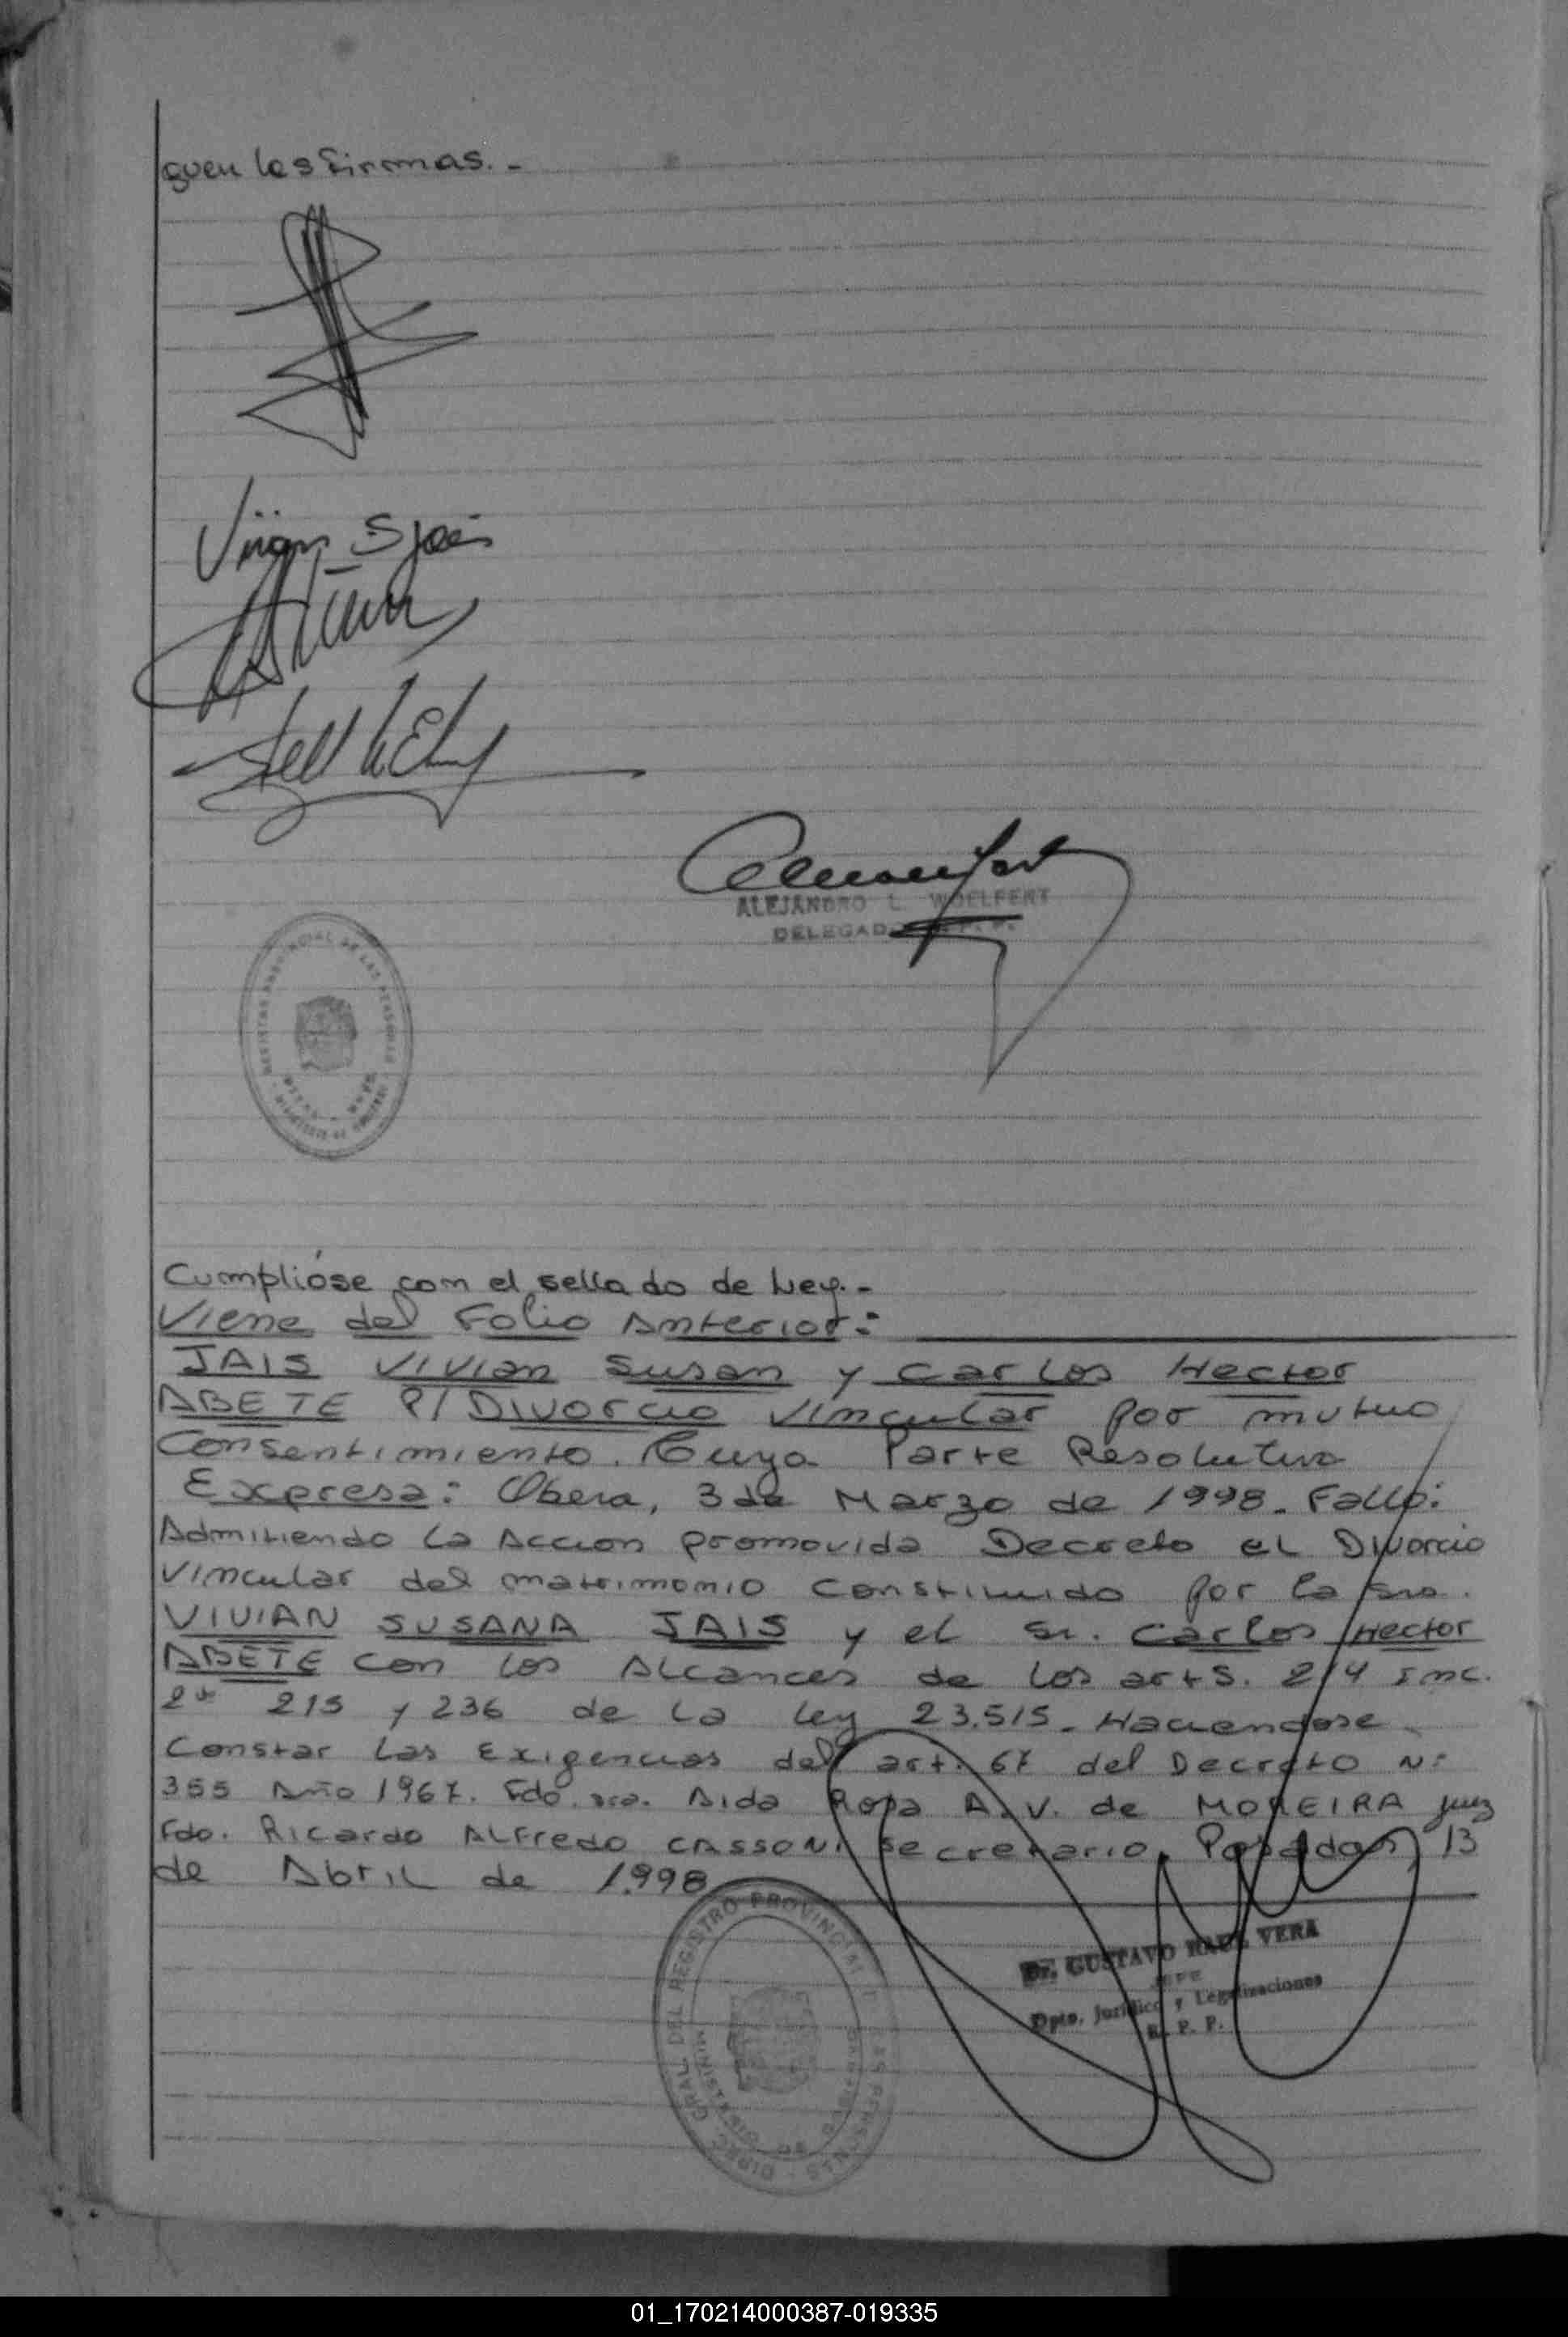 guen las firmas.-
Vivian S Jais
ALEJANDRO L. WOELFERT
DELEGADO R.P.P.
Cumplióse com el sellado de Ley.-
Viene del Folio Anterior:
JAIS Vivian Susan y Carlos Hector
ABETE P/ Divorcio Vincular por mutuo
Consentimiento. Cuya Parte Resolutiva
Expresa: Obera, 3 de Marzo de 1998. Fallo:
Admitiendo la Accion promovida Decreto el Divorcio
Vincular del matrimonio constituido por la Sra.
VIVIAN SUSANA JAIS y el Sr. Carlos Hector
ABETE con los Alcances de los arts. 214 inc.
2º 215 y 236 de la ley 23.515. Haciendose
Constar las Exigencias del art. 67 del Decreto Nº
355 Año 1967. Fdo. sra. Aida Rosa A. V. de MOREIRA juez
Fdo. Ricardo Alfredo CASSONI secretario. Posadas, 13
de Abril de 1998
Dr. GUSTAVO RAUL VERA
JEFE
Dpto. Jurídico y Legalizaciones
R. P. P.
DIREC. GRAL. DEL REGISTRO PROVINCIAL DE LAS PERSONAS
01_170214000387-019335